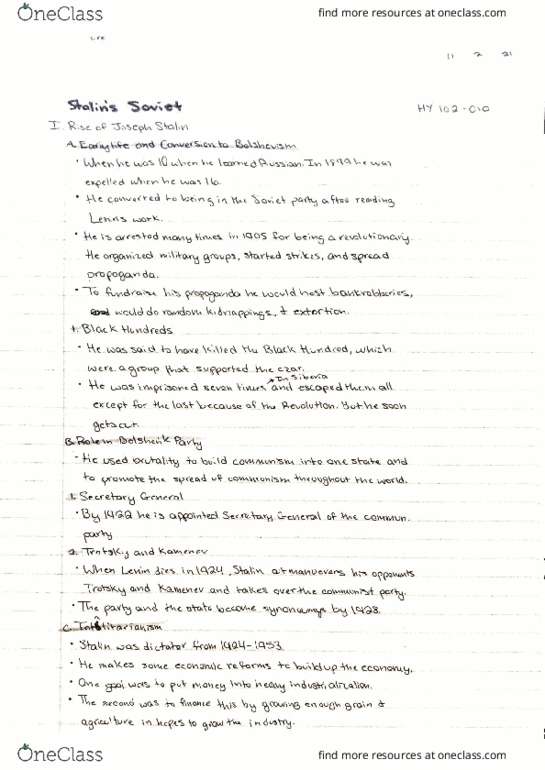 OneClass
find more resources at oneclass.com
11 2 21
Stalin's Soviet
HY 102-010
I. Rise of Joseph Stalin
A. Early life and Conversion to Bolshevism
• When he was 10 when he learned Russian. In 1899 he was
expelled when he was 16.
• He converted to being in the Soviet party after reading
Lenin's work.
• He is arrested many times in 1905 for being a revolutionary.
He organized military groups, started strikes, and spread
propoganda.
• To fundraise his propoganda he would host bankrobberies,
would do random kidnappings, & extortion.
1. Black Hundreds
• He was said to have killed the Black Hundred, which
were a group that supported the czar.
• He was imprisoned seven times and escaped them all
In Siberia
except for the last because of the Revolution. But he soon
gets out.
B. Role in Bolshevik Party
• He used brutality to build communism into one state and
to promote the spread of communism throughout the world.
1. Secretary General
• By 1922 he is appointed Secretary General of the commun.
party
2. Trotsky and Kamenev
• When Lenin dies in 1924, Stalin outmanuevers his opponents
Trotsky and Kamenev and takes over the communist party.
• The party and the state become synonymys by 1928.
C. Totalitarianism
• Stalin was dictator from 1924-1953.
• He makes some economic reforms to build up the economy.
• One goal was to put money into heavy industrialization.
• The second was to finance this by growing enough grain &
agriculture in hopes to grow the industry.
OneClass
find more resources at oneclass.com